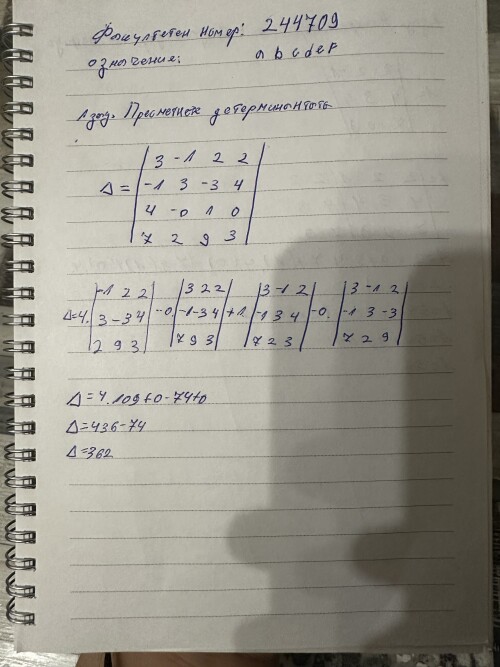 Факултетен номер: 244709
означения: a b c d e f
1 зад. Пресметнете детерминантата
3 -1 2 2
-1 3 -3 4
Δ =
4 -0 1 0
7 2 9 3
-1 2 2 3 2 2 3 -1 2 3 -1 2
Δ=4. 3 -3 4 -0. -1 -3 4 +1. -1 3 4 -0. -1 3 -3
2 9 3 7 9 3 7 2 3 7 2 9
Δ=4.109+0-74+0
Δ=436-74
Δ=362